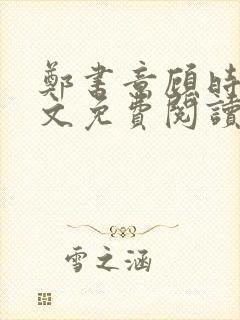 鄭書意顧時
文免費閱讀
雪之涵